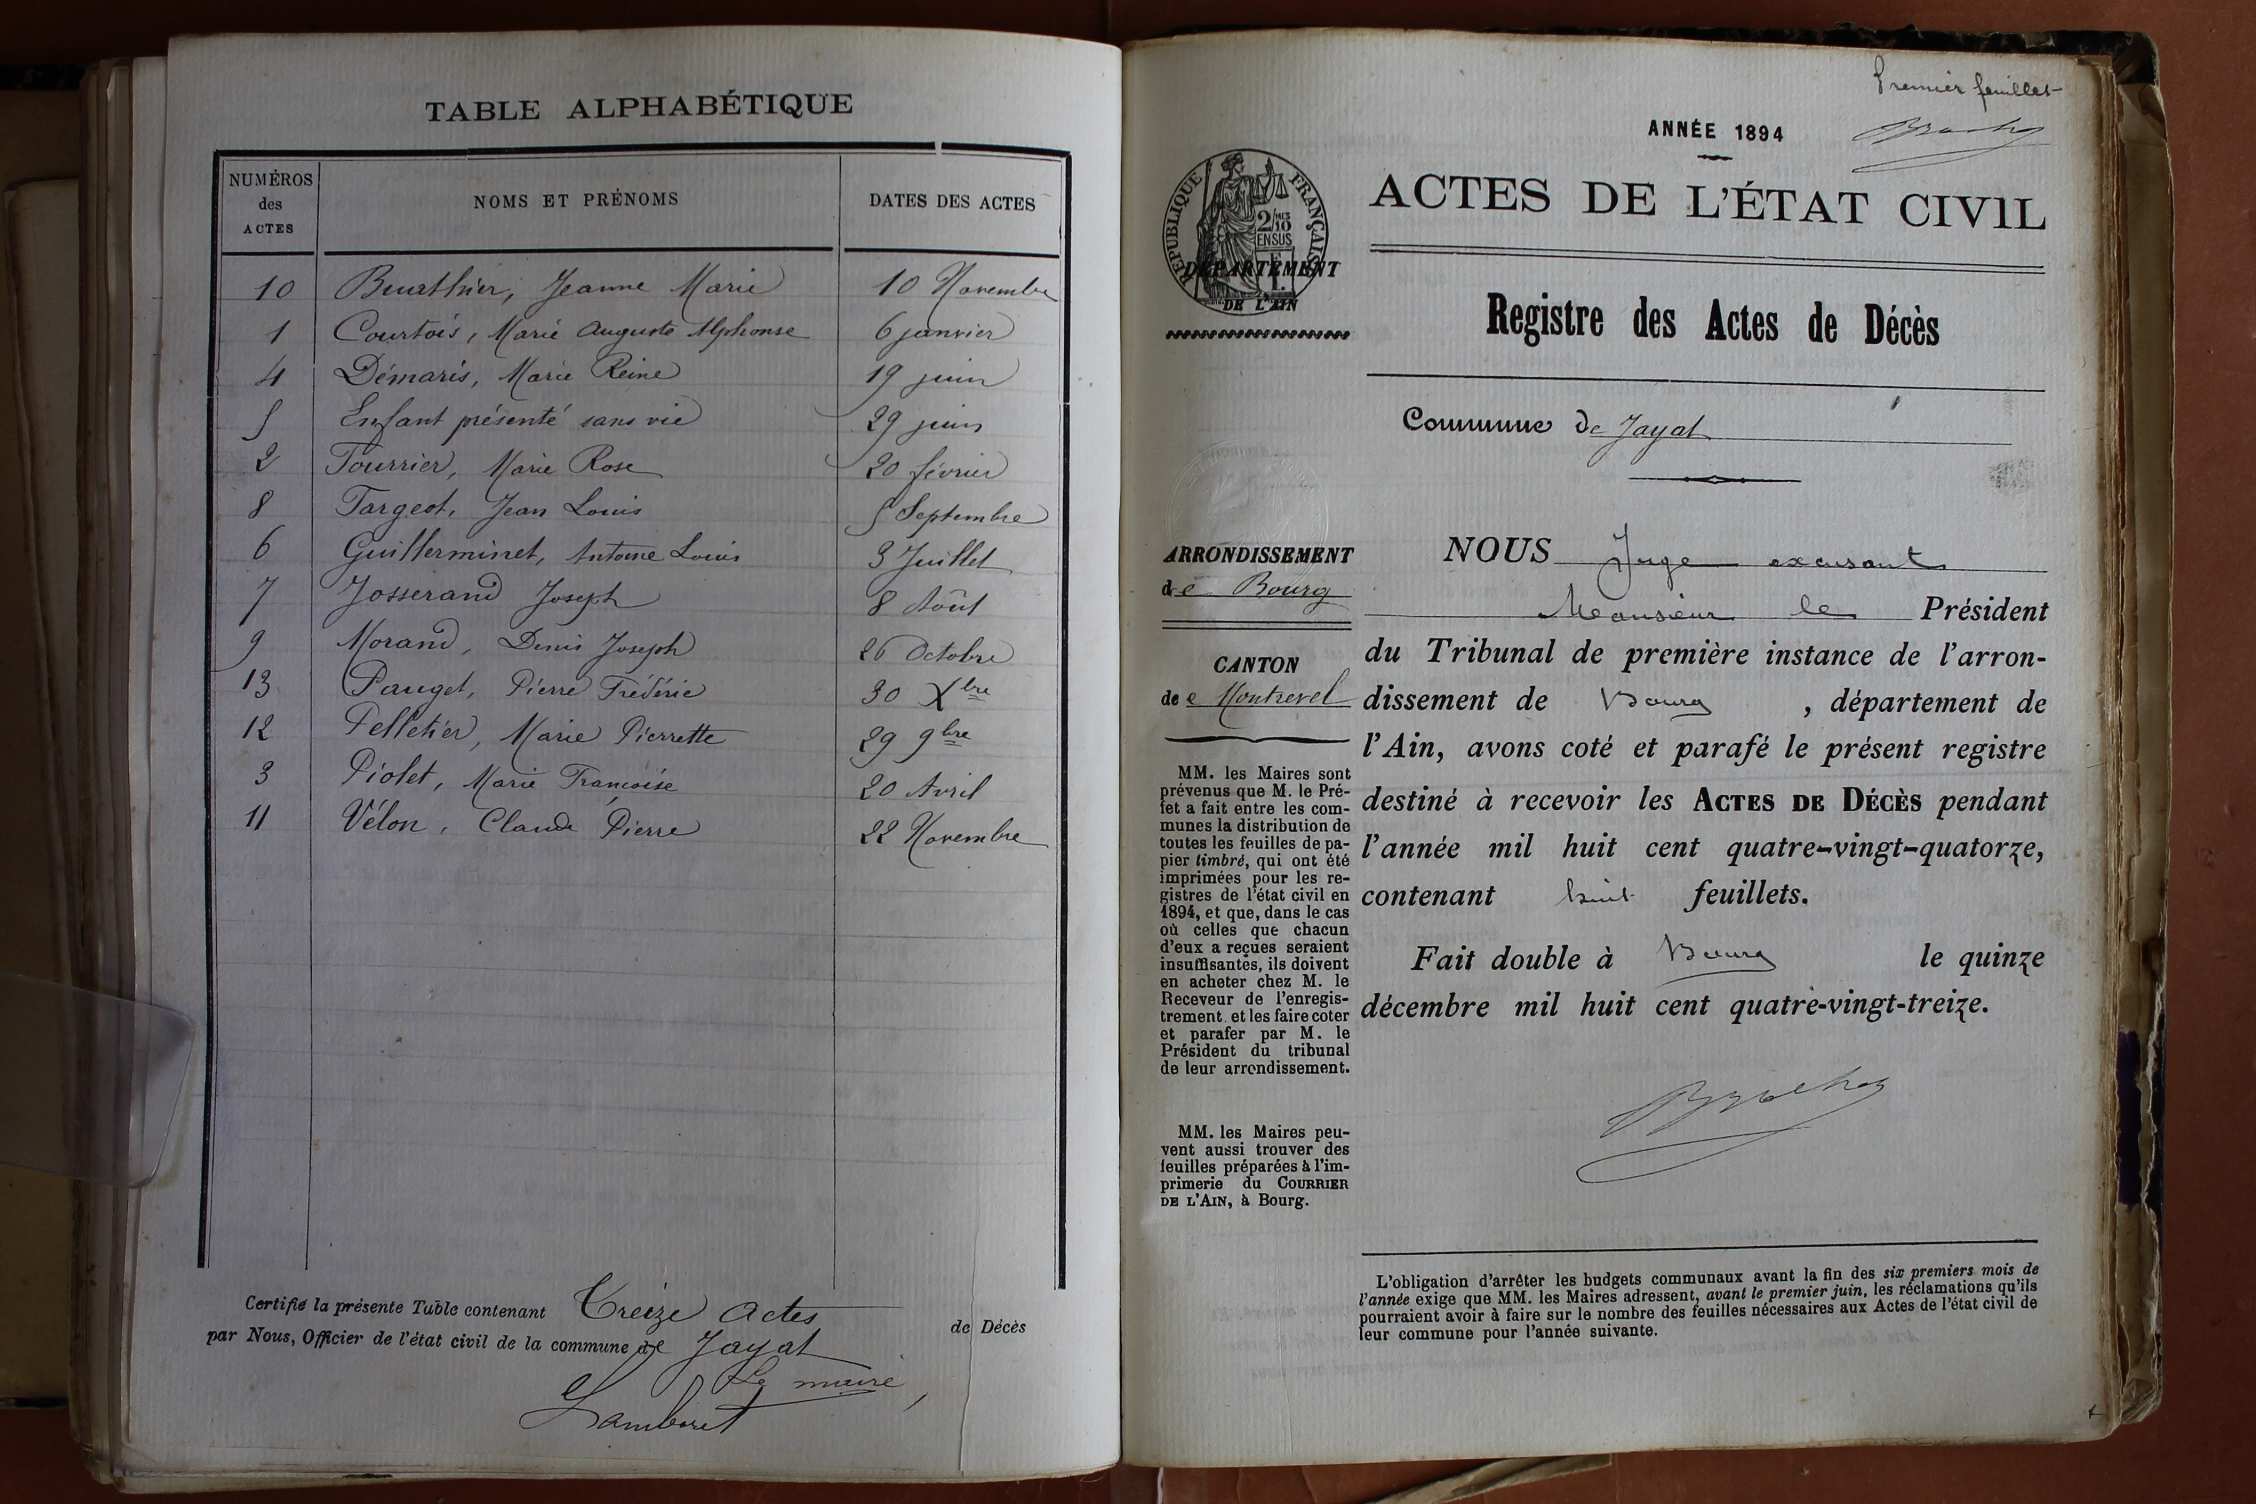 TABLE ALPHABÉTIQUE
NUMÉROS des ACTES NOMS ET PRÉNOMS DATES DES ACTES
10 Beurthier, Jeanne Marie 10 Novembre
1 Courtois, Marie Auguste Alphonse 6 janvier
4 Démaris, Marie Reine 19 juin
5 Enfant présenté sans vie 29 juin
2 Fourrier, Marie Rose 20 février
8 Fargeot, Jean Louis 5 Septembre
6 Guillerminet, Antoine Louis 3 Juillet
7 Josserand Joseph 8 Août
9 Morand, Denis Joseph 26 Octobre
13 Pauget, Pierre Frédéric 30 Xbre
12 Pelletier, Marie Pierrette 29 9bre
3 Piolet, Marie Françoise 20 Avril
11 Vélon, Claude Pierre 22 Novembre
Certifié la présente Table contenant Treize Actes de Décès
par Nous, Officier de l'état civil de la commune de Jayat
Le maire,
Lamberet
Premier feuillet
ANNÉE 1894
RÉPUBLIQUE FRANÇAISE
ACTES DE L'ÉTAT CIVIL
DÉPARTEMENT
DE L'AIN
Registre des Actes de Décès
Commune de Jayat
ARRONDISSEMENT
de Bourg
CANTON
de Montrevel
MM. les Maires sont
prévenus que M. le Pré-
fet a fait entre les com-
munes la distribution de
toutes les feuilles de pa-
pier timbré, qui ont été
imprimées pour les re-
gistres de l'état civil en
1894, et que, dans le cas
où celles que chacun
d'eux a reçues seraient
insuffisantes, ils doivent
en acheter chez M. le
Receveur de l'enregis-
trement et les faire coter
et parafer par M. le
Président du tribunal
de leur arrondissement.
MM. les Maires peu-
vent aussi trouver des
feuilles préparées à l'im-
primerie du COURRIER
DE L'AIN, à Bourg.
NOUS Juge excusant
Monsieur le Président
du Tribunal de première instance de l'arron-
dissement de Bourg, département de
l'Ain, avons coté et parafé le présent registre
destiné à recevoir les ACTES DE DÉCÈS pendant
l'année mil huit cent quatre-vingt-quatorze,
contenant huit feuillets.
Fait double à Bourg le quinze
décembre mil huit cent quatre-vingt-treize.
L'obligation d'arrêter les budgets communaux avant la fin des six premiers mois de
l'année exige que MM. les Maires adressent, avant le premier juin, les réclamations qu'ils
pourraient avoir à faire sur le nombre des feuilles nécessaires aux Actes de l'état civil de
leur commune pour l'année suivante.